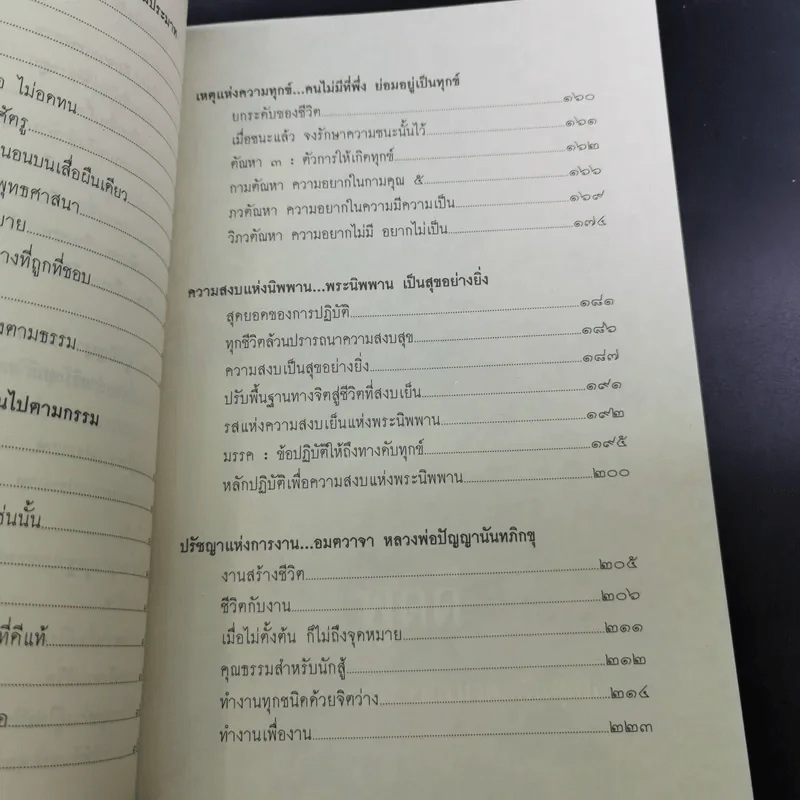 มประมาท
ไม่อดทน
ศัตรู
นอนบนเสื่อผืนเดียว
พุทธศาสนา
บาย
างที่ถูกที่ชอบ
งตามธรรม
นไปตามกรรม
ช่นนั้น
ที่ดีแท้
เหตุแห่งความทุกข์...คนไม่มีที่พึ่ง ย่อมอยู่เป็นทุกข์
ยกระดับของชีวิต ๑๖๐
เมื่อชนะแล้ว จงรักษาความชนะนั้นไว้ ๑๖๑
ตัณหา ๓ : ตัวการให้เกิดทุกข์ ๑๖๒
กามตัณหา ความอยากในกามคุณ ๕ ๑๖๖
ภวตัณหา ความอยากในความมีความเป็น ๑๖๙
วิภวตัณหา ความอยากไม่มี อยากไม่เป็น ๑๗๔
ความสงบแห่งนิพพาน...พระนิพพาน เป็นสุขอย่างยิ่ง
สุดยอดของการปฏิบัติ ๑๘๑
ทุกชีวิตล้วนปรารถนาความสงบสุข ๑๘๖
ความสงบเป็นสุขอย่างยิ่ง ๑๘๗
ปรับพื้นฐานทางจิตสู่ชีวิตที่สงบเย็น ๑๙๑
รสแห่งความสงบเย็นแห่งพระนิพพาน ๑๙๒
มรรค : ข้อปฏิบัติให้ถึงทางดับทุกข์ ๑๙๕
หลักปฏิบัติเพื่อความสงบแห่งพระนิพพาน ๒๐๐
ปรัชญาแห่งการงาน...อมตวาจา หลวงพ่อปัญญานันทภิกขุ
งานสร้างชีวิต ๒๐๕
ชีวิตกับงาน ๒๐๖
เมื่อไม่ตั้งต้น ก็ไม่ถึงจุดหมาย ๒๑๑
คุณธรรมสำหรับนักสู้ ๒๑๒
ทำงานทุกชนิดด้วยจิตว่าง ๒๑๔
ทำงานเพื่องาน ๒๒๓